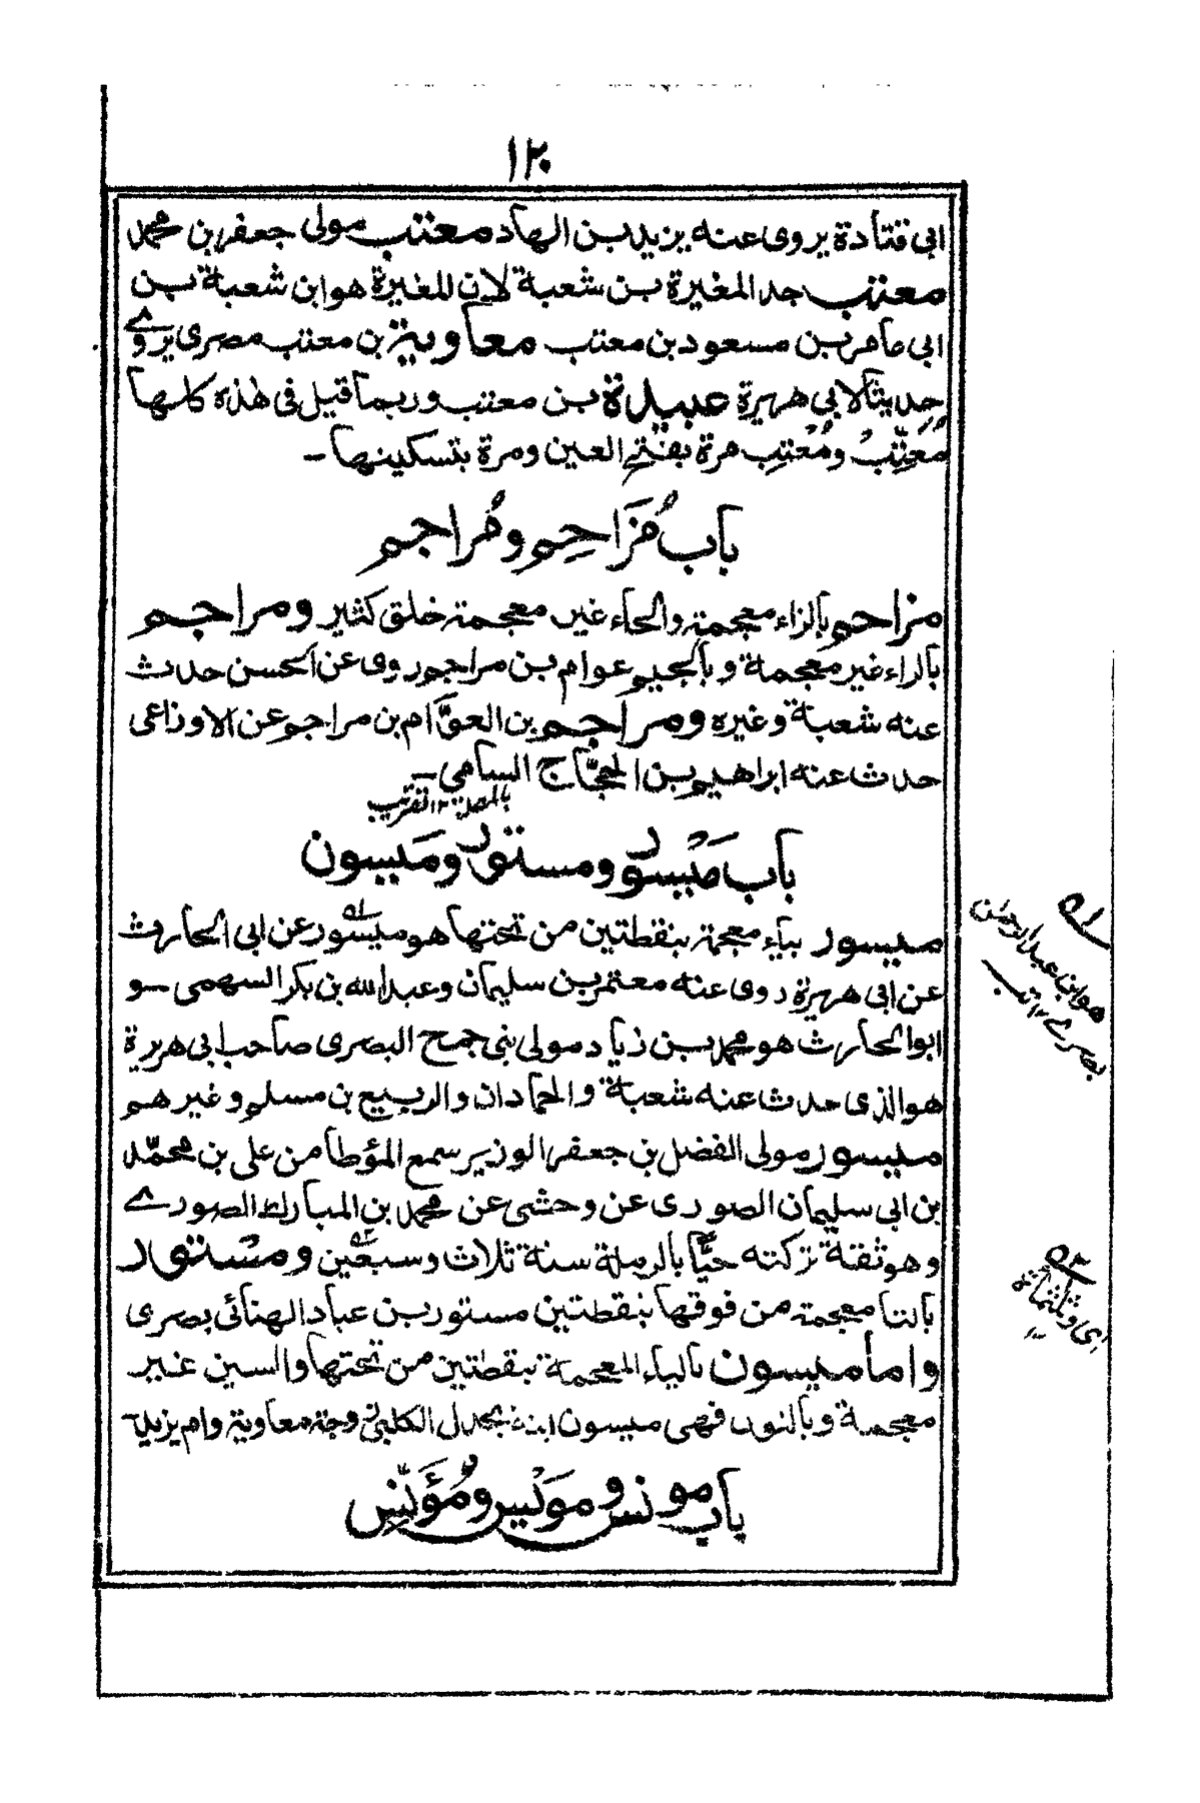 ١٢٠
ابي قتادة يروى عنه يزيد بن الهاد معتب مولى جعفر بن محمد
معتب جد المغيرة بن شعبة لان المغيرة هو ابن شعبة بن
ابي عامر بن مسعود بن معتب معاوية بن معتب مصرى يروے
حديثا لابي هريرة عبيدة بن معتب وربما قيل في هذه كلها
مُعَتِّبُ ومُعْتِب مرة بفتح العين ومرة بتسكينها ـ
باب مُزَاحِم ومُراجم
مزاحم بالزاء معجمة والحاء غير معجمة خلق كثير ومراجم
بالراء غير معجمة وبالجيم عوام بن مراجم روى عن الحسن حدث
عنه شعبة وغيره ومراجم بن العوَّام بن مراجم عن الاوزاعى
حدث عنه ابراهيم بن الحجّاج السامي ـ
بالمهملة ١٢ تقريب
باب مَيْسور ومستور ومَيسون
ميسور بياء معجمة بنقطتين من تحتها هو ميسور عن ابى الحارث
عن ابى هريرة روى عنه معتمر بن سليمان وعبد الله بن بكر السهمى ـ و
ابوالحارث هو محمد بن زياد مولى بنى جمح البصرى صاحب ابى هريرة
هو الذى حدث عنه شعبة والحمادان والربيع بن مسلم وغيرهم
ميسور مولى الفضل بن جعفر الوزير سمع المؤطا من على بن محمّد
بن ابى سليمان الصورى عن وحشى عن محمد بن المبارك الصورے
وهو ثقة تركته حيًّا بالرملة سنة ثلاث وسبعين ومستور
بالتا معجمة من فوقها بنقطتين مستور بن عباد الهنائى بصرى
واما ميسون بالياء المعجمة بنقطتين من تحتها والسين غير
معجمة وبالنون فهى ميسون ابنة بحدل الكلبى زوجة معاوية وام يزيد
باب مونس ومويس ومُؤَنِّس
ه١
هو ابن عبد الرحمن
بصرے ١٢ تب
ه٢
اى وثلثمائة
١٢